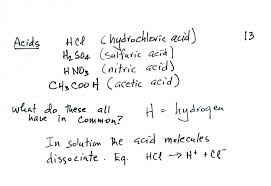 Acids HCl (hydrochloric acid) 13
H₂SO₄ (sulfuric acid)
HNO₃ (nitric acid)
CH₃COOH (acetic acid)
what do these all H = hydrogen
have in common?
In solution the acid molecules
dissociate. Eq. HCl → H⁺ + Cl⁻